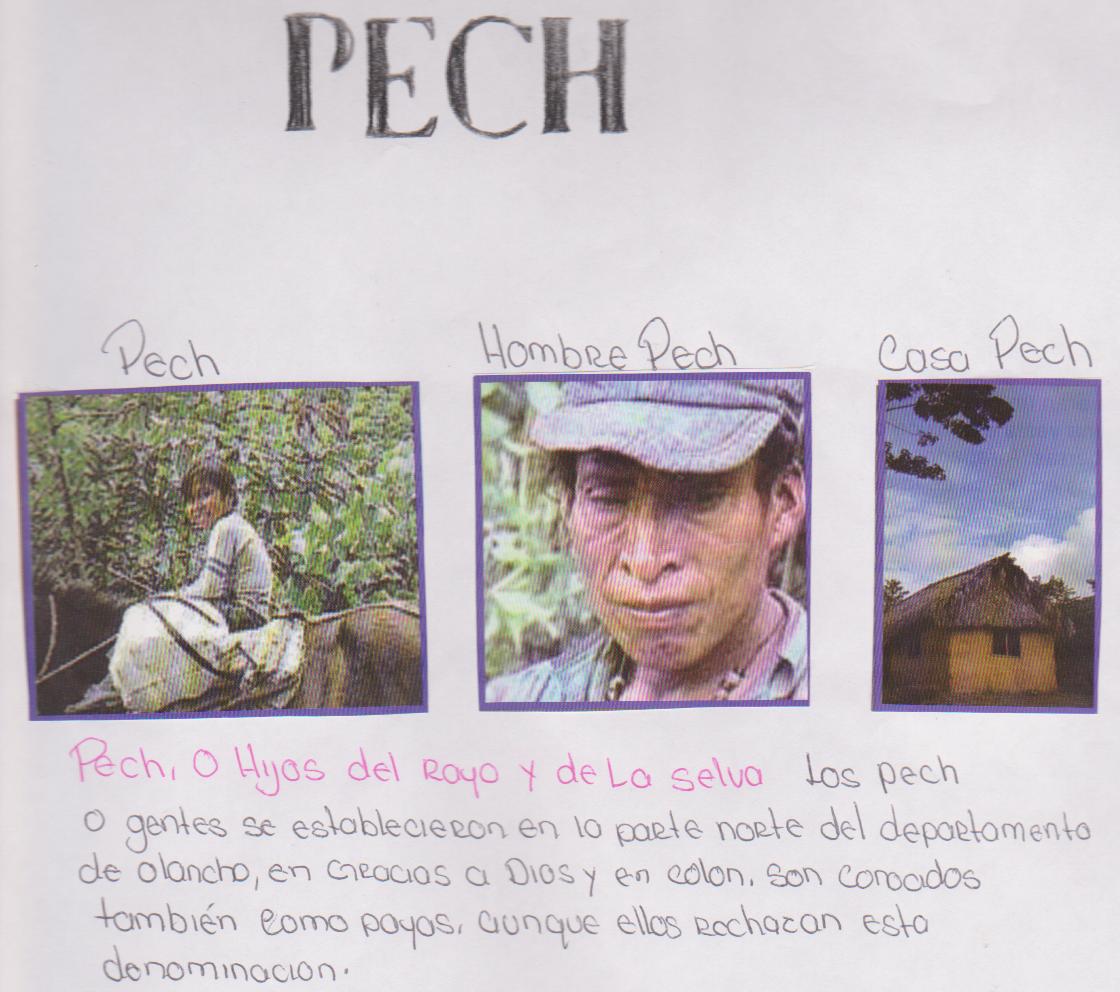 PECH
Pech
Hombre Pech
Casa Pech
Pech, o Hijos del Rayo y de La selva Los pech
o gentes se establecieron en la parte norte del departamento
de olancho, en Gracias a Dios y en colon. son conoados
también como payas, aunque ellos Rechazan esta
denominacion.